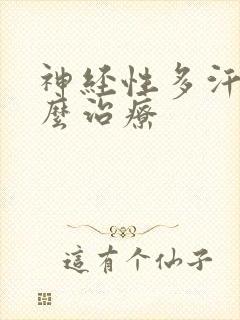 神経性多汗
麼治療
這有个仙子